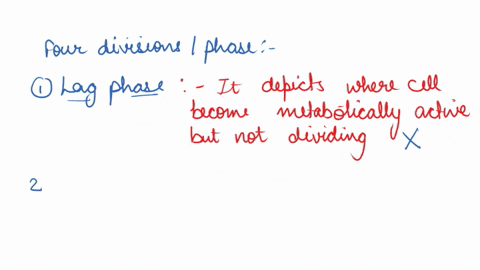 Four divisions / phase :-
① Lag phase :- It depicts where cell
become metabolically active
but not dividing X
2